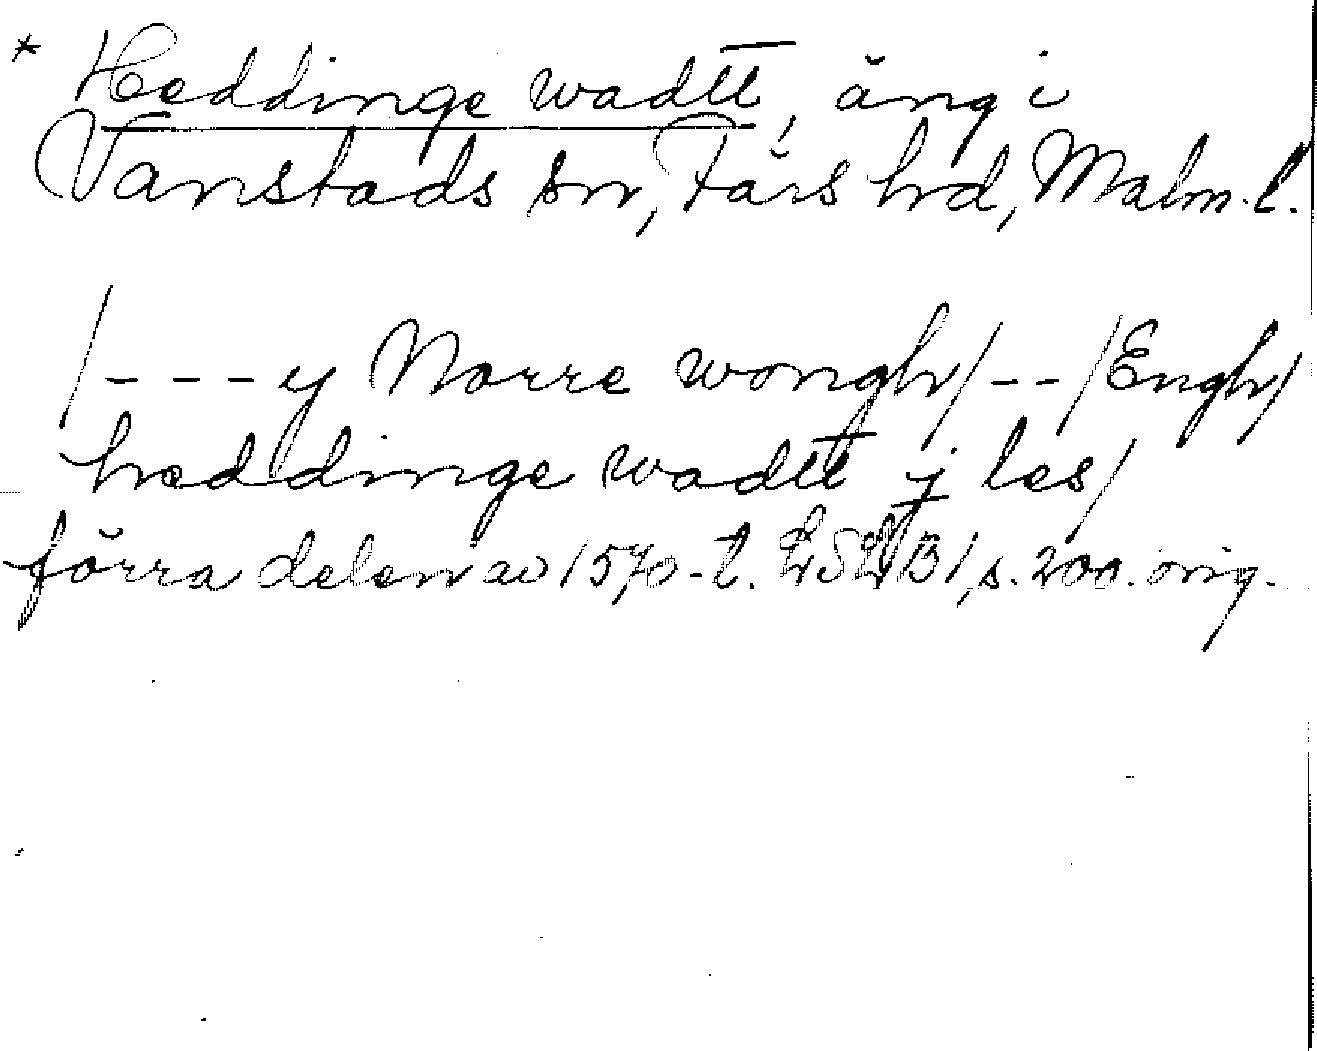 * Heddinge wadtt, äng i
Vanstads sn, Färs hd, Malm. l.
/ - - - y Norre wongh/ - - /Engh/
heddinge wadtt j les/
förra delen av 1570-t. LSLB1, s. 200. orig.